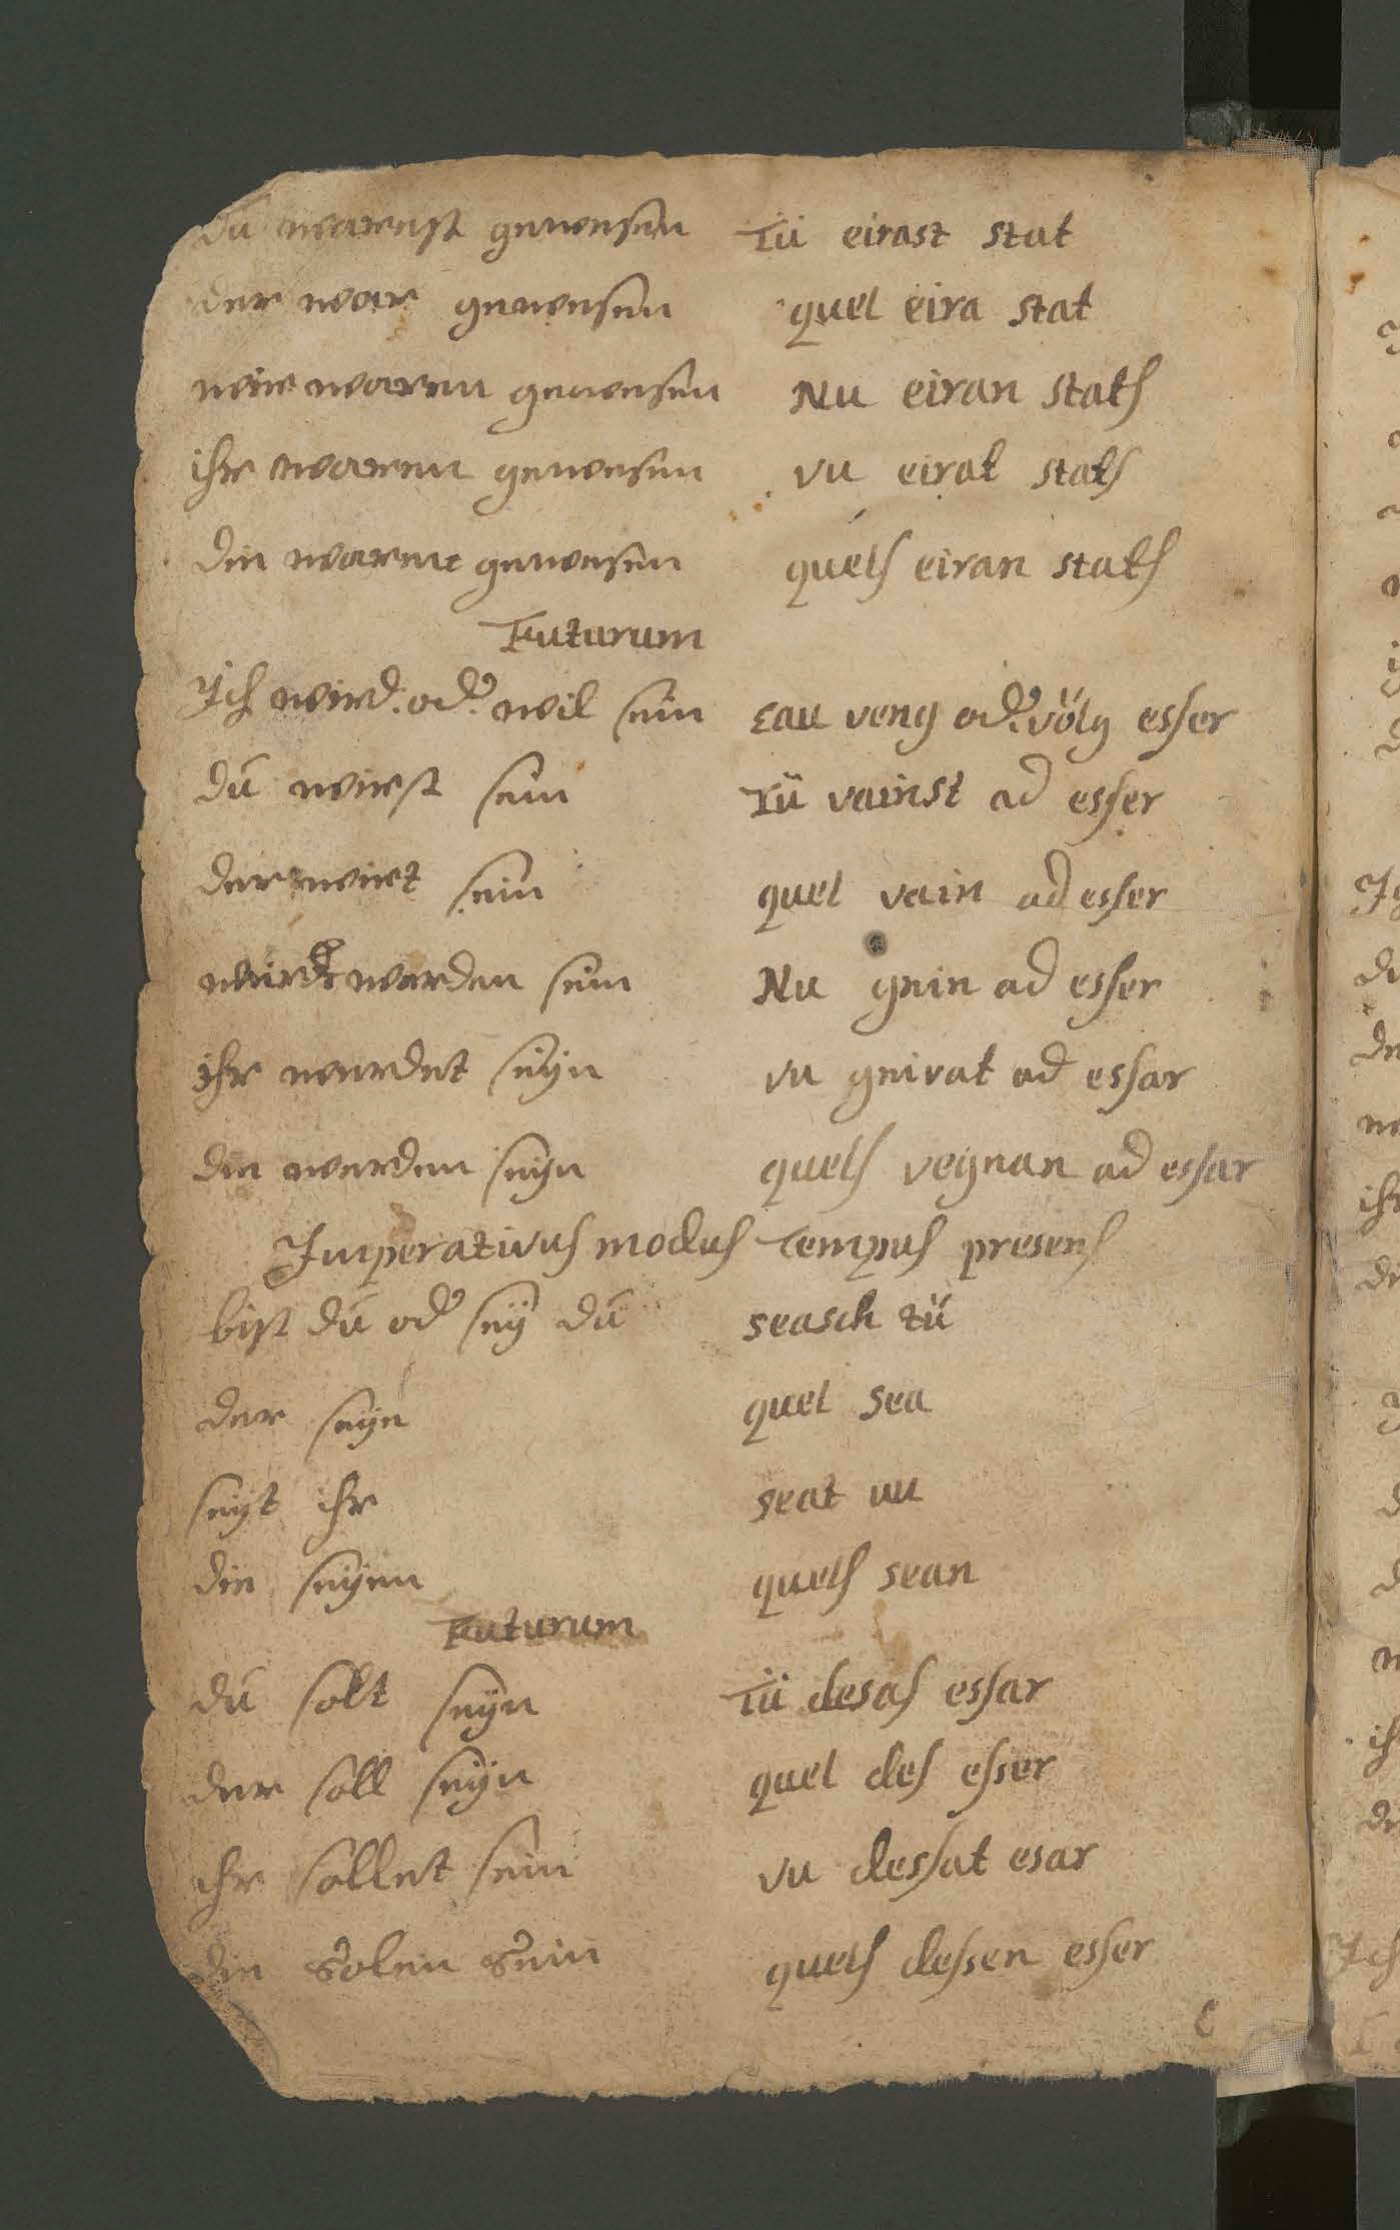 du warenst gewesen Tü eirast stat
der war gewesen quel eira stat
wir waren gewesen Nu eiran stats
ihr waren gewesen vu eirat stats
die waren gewesen quels eiran stats
Futurum
Ich wird. od. wil sein Eau veng od. völg esser
du wirst sein Tü vainst ad esser
der wirt sein quel vain ad esser
werden sein Nu gnin ad esser
ihr werdet seyn vu gnivat ad essar
die werden seyn quels vegnan ad essar
Imperativus modus Tempus presens
bist du od sey du seasch tü
der seye quel sea
seyt ihr seat vu
die seyen quels sean
Futurum
du solt seyn Tü desas essar
der soll seyn quel des esser
ihr sollet sein vu dessat esar
die solen sein quels dessen esser